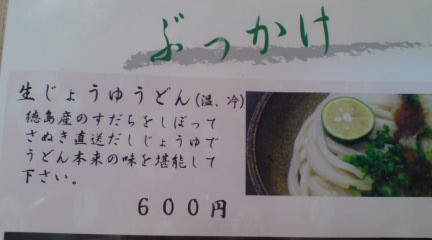 ぶっかけ
生じょうゆうどん(温、冷)
徳島産のすだちをしぼって
さぬき直送だしじょうゆで
うどん本来の味を堪能して
下さい。
６００円